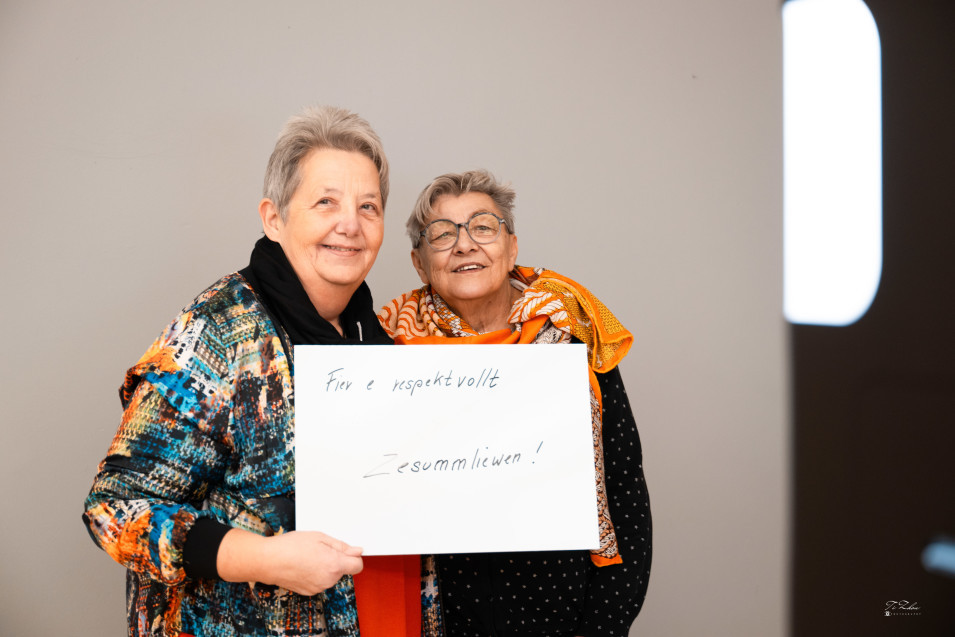 Fier e respektvollt
Zesummliewen!